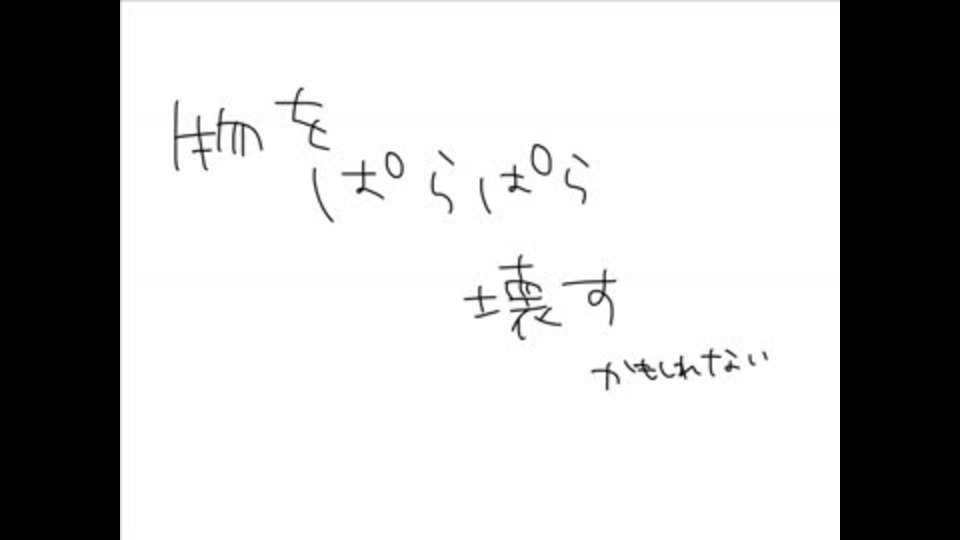 物を
ぱらぱら
壊す
かもしれない